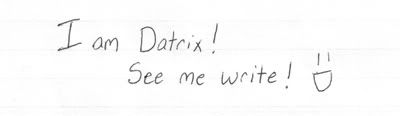 I am Datrix!
See me write!